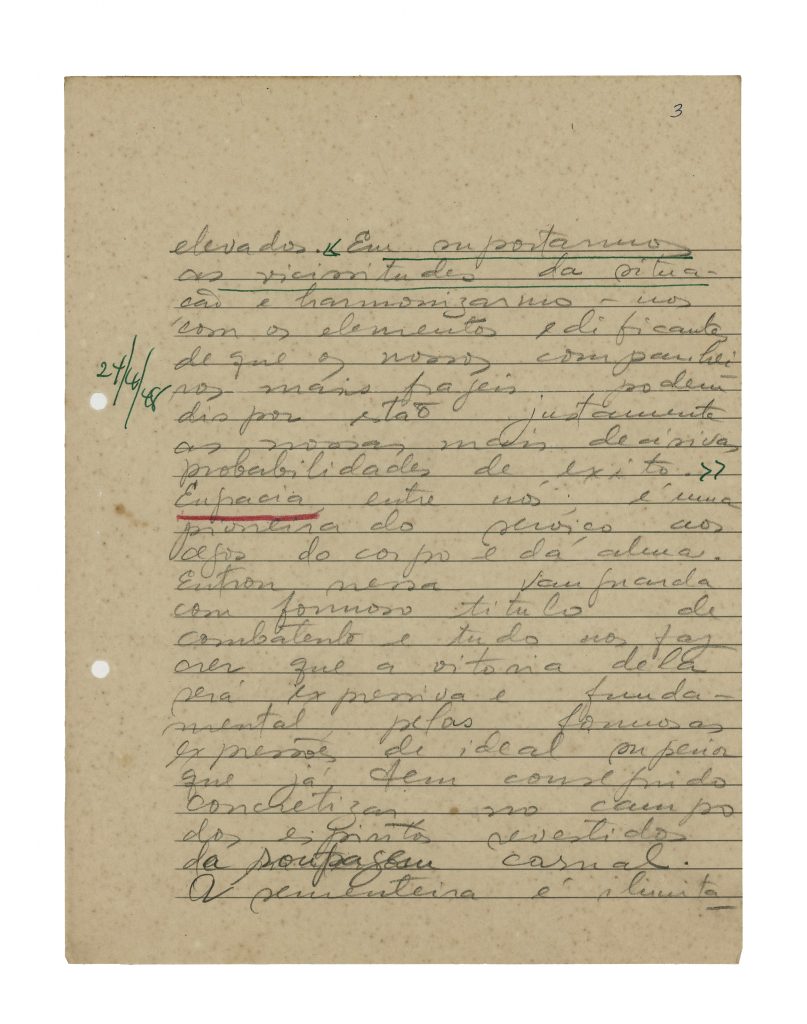 3
elevados. << Em suportarmos
as vicissitudes da situa-
cão e harmonizarmo-nos
com os elementos edificantes
de que os nossos companhei
24/10/48
ros mais frageis podem
dispor estão justamente
as nossas mais decisivas
probabilidades de exito. >>
Engracia, entre nós, é uma
pioneira do serviço aos
cegos do corpo e da alma.
Entrou nessa vanguarda
com formoso titulo de
combatente e tudo nos faz
crer que a vitoria dela
será expressiva e funda-
mental, pelas formosas
expressões de ideal superior
que já tem conseguido
concretizar no campo
dos espiritos revestidos
da roupagem carnal.
A sementeira é ilimita